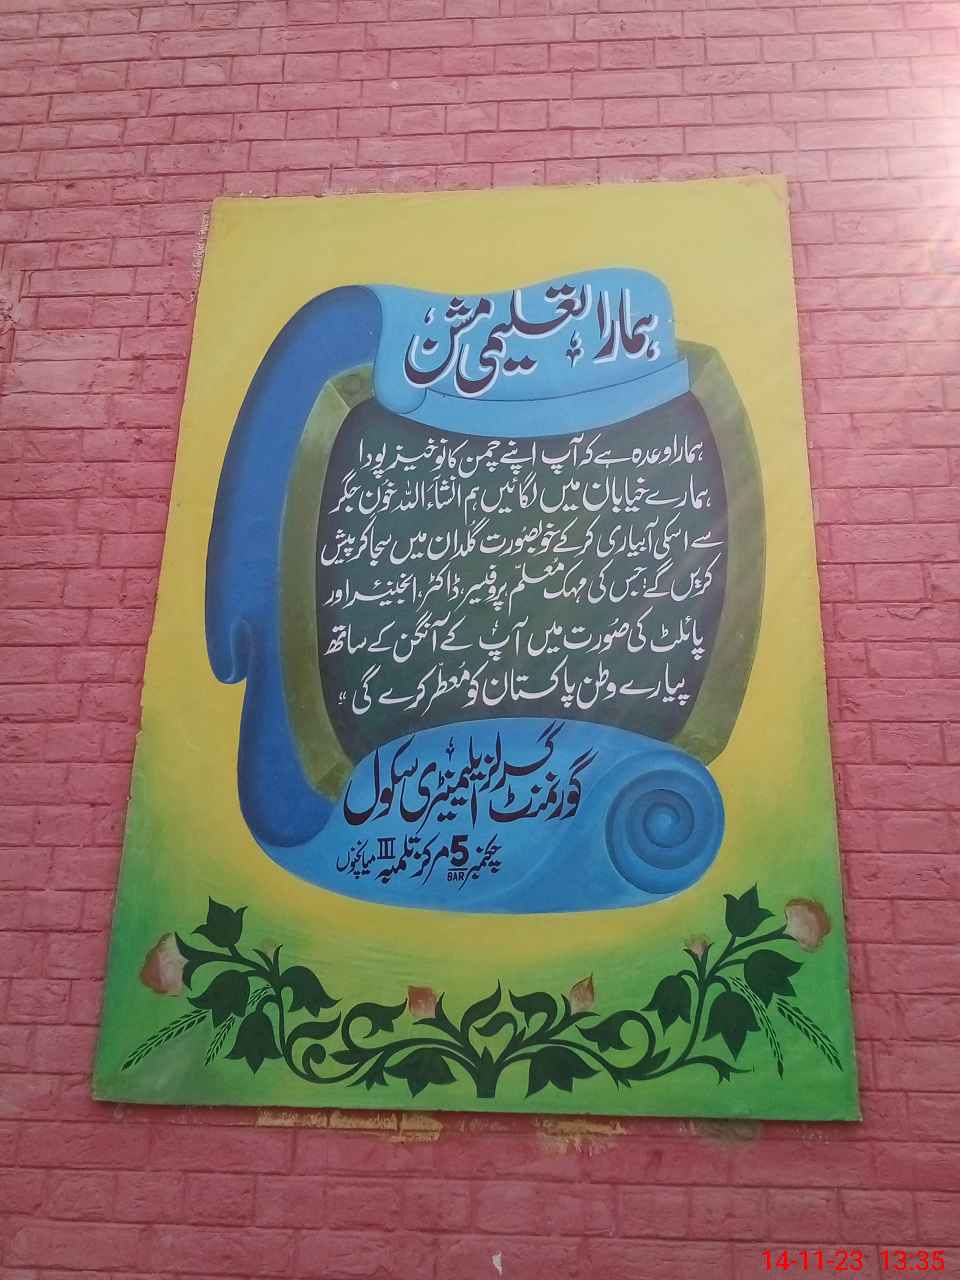 ہمارا تعلیمی مشن
ہمارا وعدہ ہے کہ آپ اپنے چمن کا نوخیز پودا
ہمارے خیابان میں لگائیں ہم انشآءاللہ خون جگر
سے اسکی آبیاری کر کے خوبصورت گلدان میں سجا کر پیش
کریں گے جس کی مہک معلّم، پروفیسر، ڈاکٹر، انجینئر اور
پائلٹ کی صُورت میں آپ کے آنگن کے ساتھ
پیارے وطن پاکستان کو مُعطّر کرے گی"
گورنمنٹ گرلز ایلیمنٹری سکول
چکنمبر 5 BAR مرکز تلمبہ III میانچنوں
14-11-23 13:35